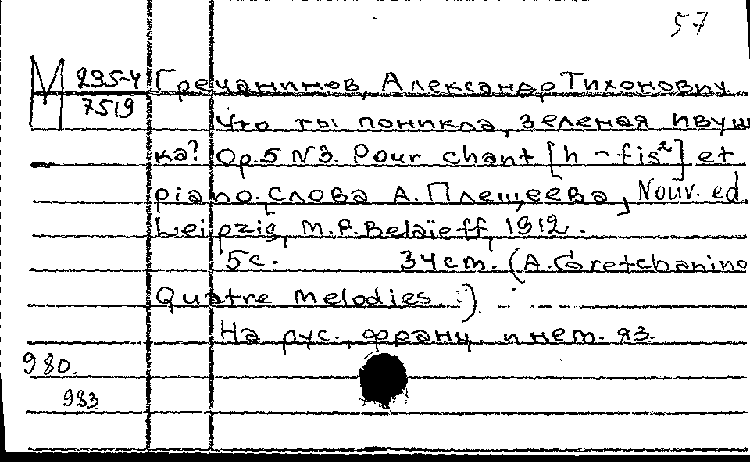 57
М 295-4 Гречанинов, Александр Тихонович
7519
Что ты поникла, зеленая ивуш
ка? Op.5 N3. Pour chant [h - fis²] et
piano. [Слова А. Плещеева], Nouv. ed.
Leipzig, M.P. Belaïeff, 1912.
5с. 34cm. (A. Gretchanino
Quatre melodies. )
На рус., франц. и нем. яз.
980.
983